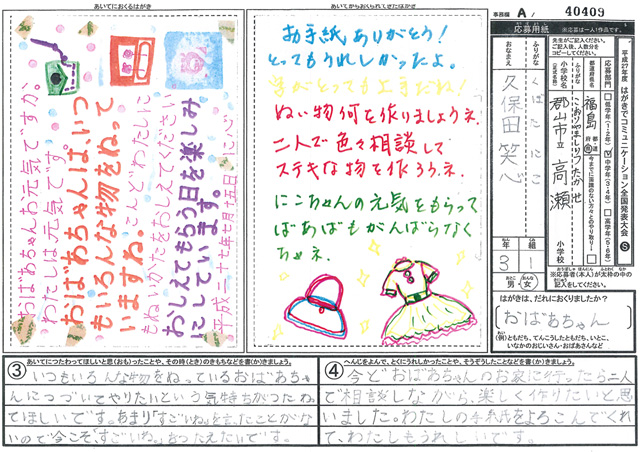 あいてにおくるはがき
おばあちゃんお元気ですか。
わたしは元気です。
おばあちゃんは、いつ
もいろんな物をぬって
いますね。こんどわたしに
もぬいかたをおしえてください
おしえてもらう日を楽しみ
にしています。
平成二十七年七月十五日 にこ
あいてからおくられてきたはがき
お手紙ありがとう!
とってもうれしかったよ。
字がとっても上手だね!
ぬい物何を作りましょうネ。
二人で色々相談して
ステキな物を作ろうネ。
にこちゃんの元気をもらって
ばあばもがんばらなく
ちゃネ。
事務欄 A/ 40409
平成27年度 はがきでコミュニケーション全国発表大会 S
応募用紙
※応募は一人1作品です。
先生がご記入ください。
ご記入後、人数分を
コピーしてください。
応募部門
低学年(1・2年)
中学年(3・4年)
高学年(5・6年)
都道府県名
福島
都道府県
今までに面識のない方々とのやり取り
ふりがな
小学校名
こおりやましりつたかせ
郡山市立 高瀬
小学校
ふりがな
くぼたにこ
おなまえ
久保田 笑心
年 組
3 1
男・女
※応募者(本人)が太枠の中の
記入をしてください。
はがきは、だれにおくりましたか?
おばあちゃん
(例)ともだち、てんこうしたともだち、いとこ、
いなかのおじいさん・おばあさんなど
③ あいてにつたわってほしいと思(おも)ったことや、その時(とき)のきもちなどを書(か)きましょう。
いつもいろんな物をぬっているおばあちゃ
んにつづいてやりたいという気持ちがつたわっ
てほしいです。あまり「すごいね」を言ったことがな
いので今こそ「すごいね。」をつたえたいです。
④ へんじをよんで、とくにうれしかったことや、そうぞうしたことなどを書(か)きましょう。
今どおばあちゃんのお家に行ったら二人
で相談しながら、楽しく作りたいと思
いました。わたしの手紙をよろこんでくれ
て、わたしもうれしいです。